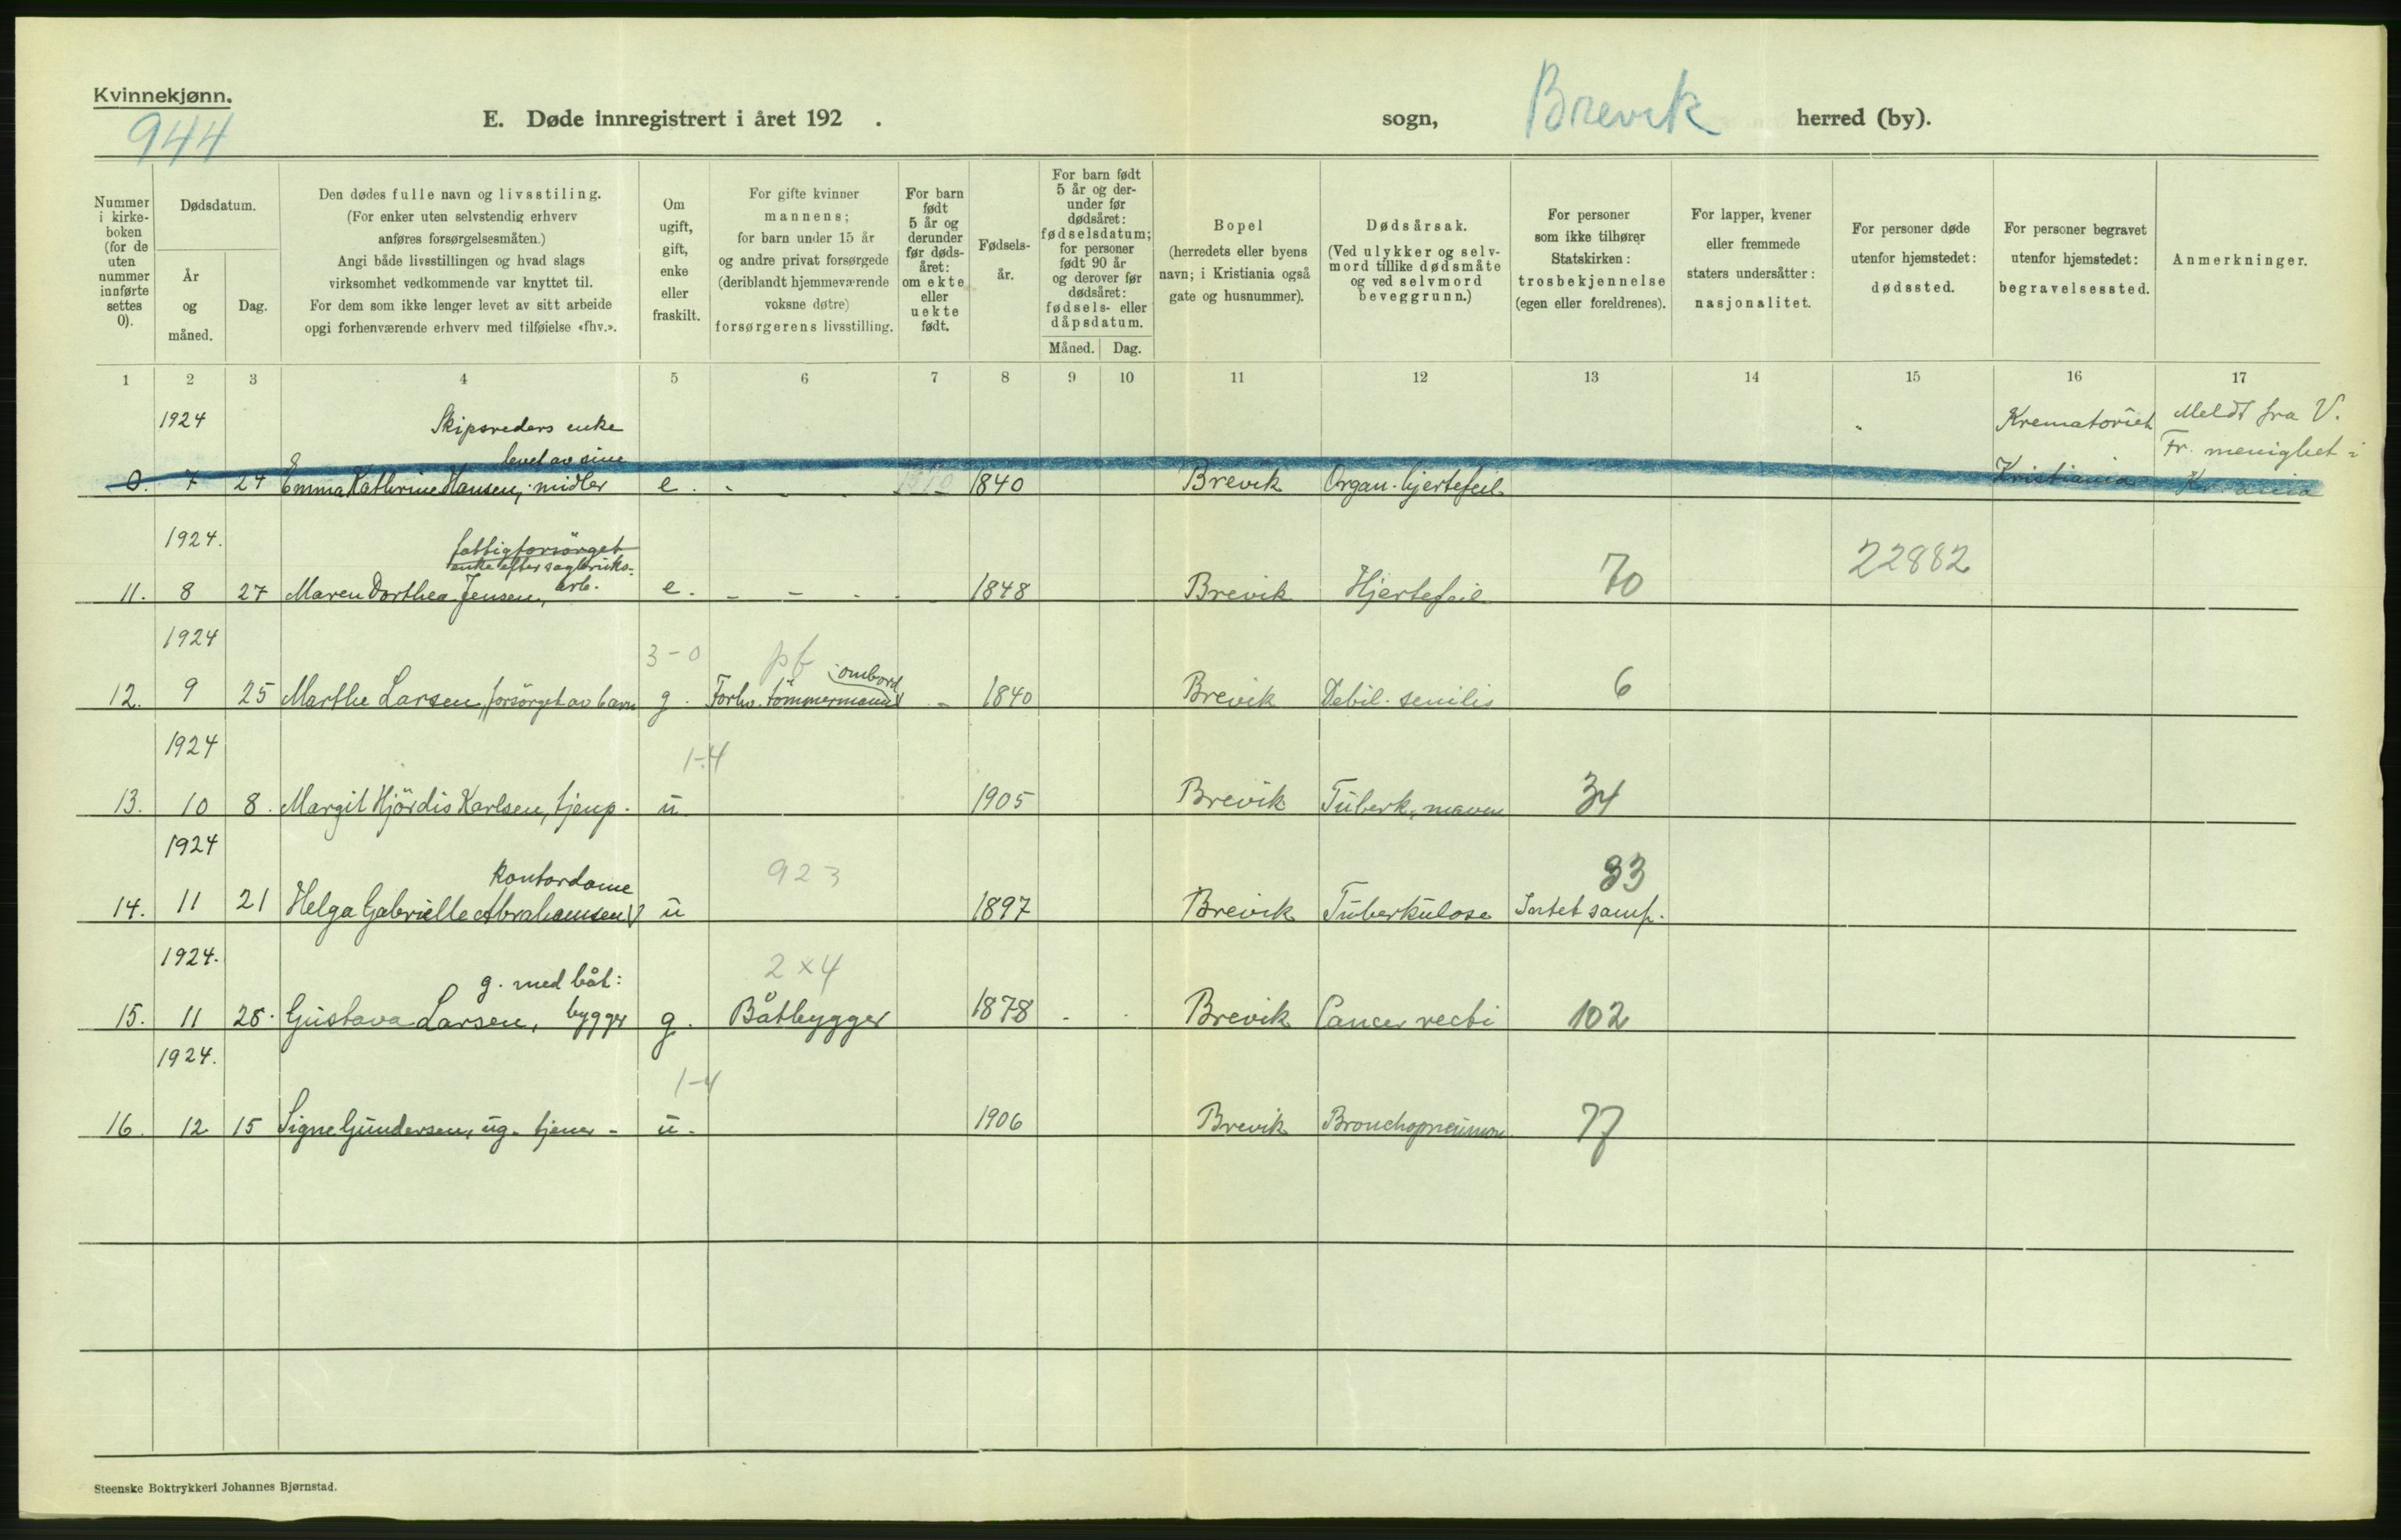 Kvinnekjønn.
944
E. Døde innregistrert i året 192 .
sogn,
Brevik
herred (by).
Nummer i kirke- boken (for de uten nummer innførte settes 0).
Dødsdatum.
År og måned.
Dag.
Den dødes fulle navn og livsstiling.
(For enker uten selvstendig erhverv
anføres forsørgelsesmåten.)
Angi både livsstillingen og hvad slags
virksomhet vedkommende var knyttet til.
For dem som ikke lenger levet av sitt arbeide
opgi forhenværende erhverv med tilføielse «fhv.».
Om ugift, gift, enke eller fraskilt.
For gifte kvinner
mannens;
for barn under 15 år
og andre privat forsørgede
(deriblandt hjemmeværende
voksne døtre)
forsørgerens livsstilling.
For barn født 5 år og derunder før døds- året: om ekte eller uekte født.
Fødsels- år.
For barn født 5 år og der- under før dødsåret: fødselsdatum; for personer født 90 år og derover før dødsåret: fødsels- eller dåpsdatum.
Måned.
Dag.
Bopel
(herredets eller byens
navn; i Kristiania også
gate og husnummer).
Dødsårsak.
(Ved ulykker og selv-
mord tillike dødsmåte
og ved selvmord
beveggrunn.)
For personer
som ikke tilhører
Statskirken:
trosbekjennelse
(egen eller foreldrenes).
For lapper, kvener
eller fremmede
staters undersåtter:
nasjonalitet.
For personer døde
utenfor hjemstedet:
dødssted.
For personer begravet
utenfor hjemstedet:
begravelsessted.
Anmerkninger.
1 2 3 4 5 6 7 8 9 10 11 12 13 14 15 16 17
1924 Skipsreders enke Krematoriet Meldt fra V.
levet av sine Fr. menighet i
0. 7 24 Emma Kathrine Hansen, midler e. - - - 1840 Brevik Organ. hjertefeil Kristiania Kr.ania
1924. fattigforsörget
enke efter sagbruks- 22882
11. 8 27 Maren Dorthea Jensen, arb. e. - - - - 1848 Brevik Hjertefeil 70
1924 3-0 pf ombord
12. 9 25 Marthe Larsen, forsörget av barn g. Forhv. tömmermand - 1840 Brevik Debil. senilis 6
1924 1-4
13. 10 8. Margit Hjördis Karlsen, tjenp. u. 1905 Brevik Tuberk. maven 34
1924 kontordame 923 33
14. 11 21 Helga Gabrielle Abrahamsen u 1897 Brevik Tuberkulose Intet samf.
1924. g. med båt: 2x4
15. 11 28. Gustava Larsen, bygger g. Båtbygger 1878 - Brevik Cancer recti 102
1924. 1-4
16. 12 15 Signe Gundersen, ug. tjener - u. 1906 Brevik Bronchopneumon 77
Steenske Boktrykkeri Johannes Bjørnstad.